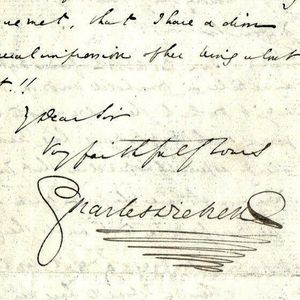 met, that I have a dim
impression of her being about
t!!
My Dear Sir
Very faithfully Yours
Charles Dickens